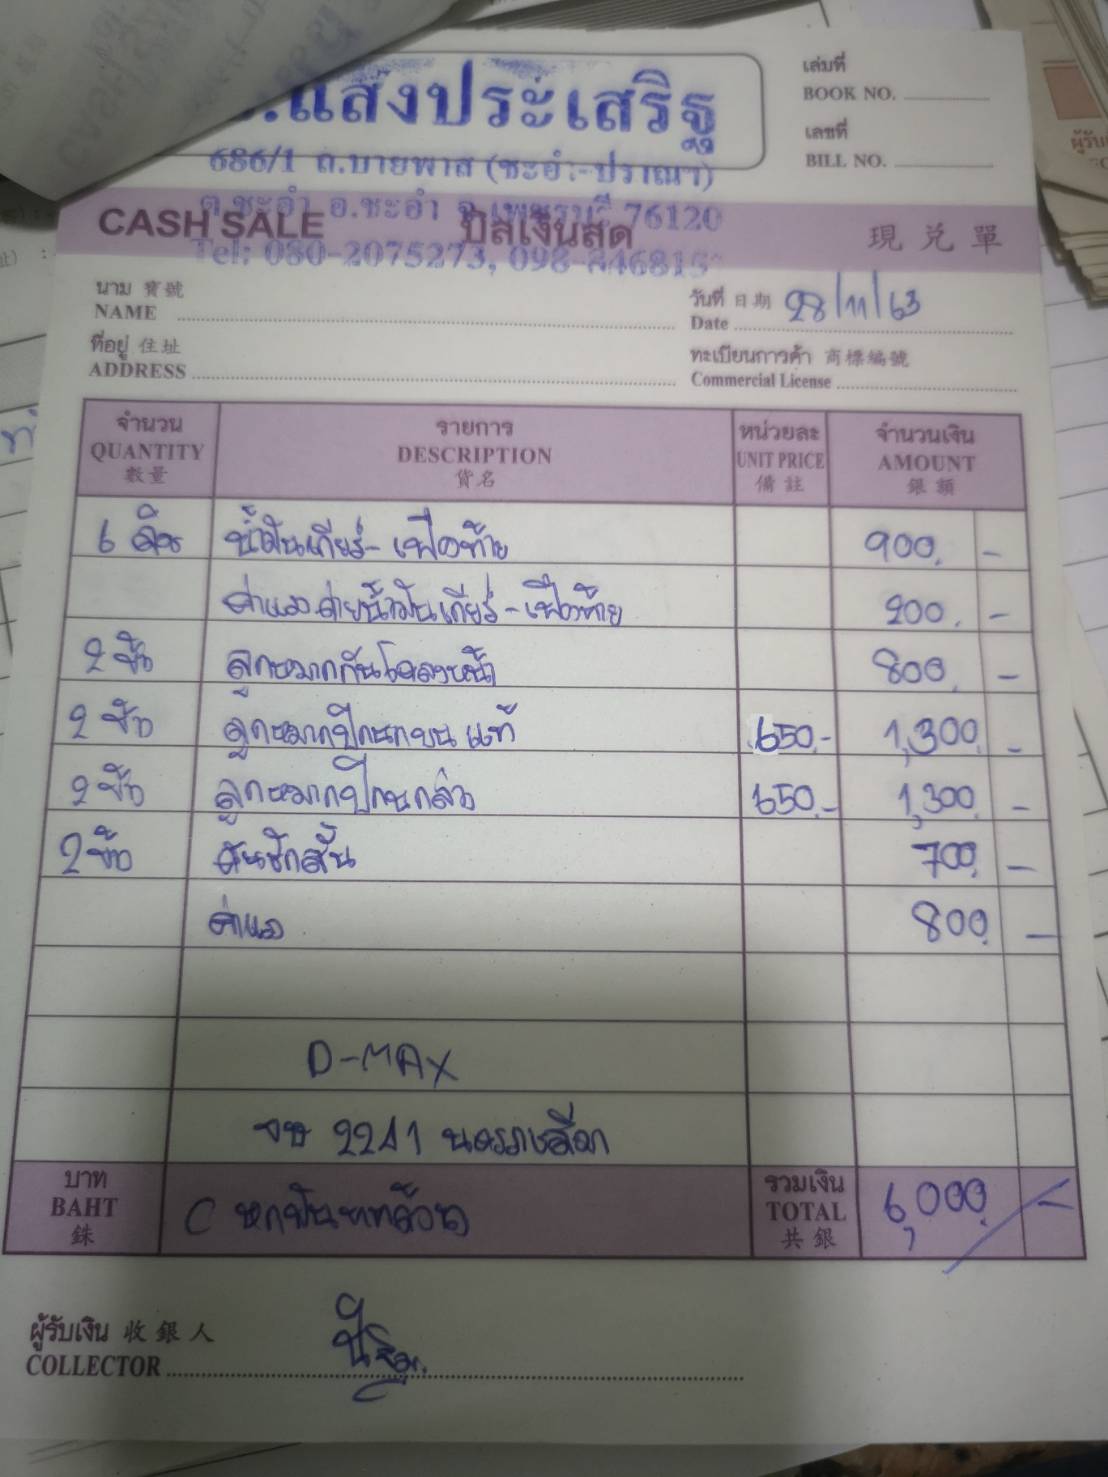 .แสงประเสริฐ
686/1 ถ.บายพาส (ชะอำ-ปราณฯ)
ต.ชะอำ อ.ชะอำ จ.เพชรบุรี 76120
Tel: 080-2075273, 098-
เล่มที่
BOOK NO.
เลขที่
BILL NO.
CASH SALE บิลเงินสด 現兌單
นาม 寶號
NAME
วันที่ 日期 28/11/63
Date
ที่อยู่ 住址
ADDRESS
ทะเบียนการค้า 商標編號
Commercial License
จำนวน รายการ หน่วยละ จำนวนเงิน
QUANTITY DESCRIPTION UNIT PRICE AMOUNT
數量 貨名 備註 銀額
6 ลิตร น้ำมันเกียร์-เฟืองท้าย 900. -
ค่าแรงถ่ายน้ำมันเกียร์-เฟืองท้าย 200. -
2 ชิ้น ลูกหมากกันโคลงหน้า 800. -
2 ชิ้น ลูกหมากปีกนกบน แท้ 650.- 1,300. -
2 ชิ้น ลูกหมากปีกนกล่าง 650.- 1,300. -
2 ชิ้น คันชักสั้น 700. -
ค่าแรง 800. -
D-MAX
2241
บาท รวมเงิน
BAHT (หกพันบาทถ้วน) TOTAL 6,000. -
銖 共銀
ผู้รับเงิน 收銀人
COLLECTOR